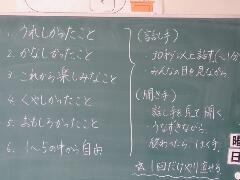 1. うれしかったこと
2. かなしかったこと
3. これから楽しみなこと
4. くやしかったこと
5. おもしろかったこと
6. 1〜5の中から自由
(話し手)
・30秒以上話す(〜1分)
みんなの目を見ながら
(聞き手)
・話し手を見て聞く
・うなずきながら
・終わったらはく手。
☆1回だけやり直せる
曜
日